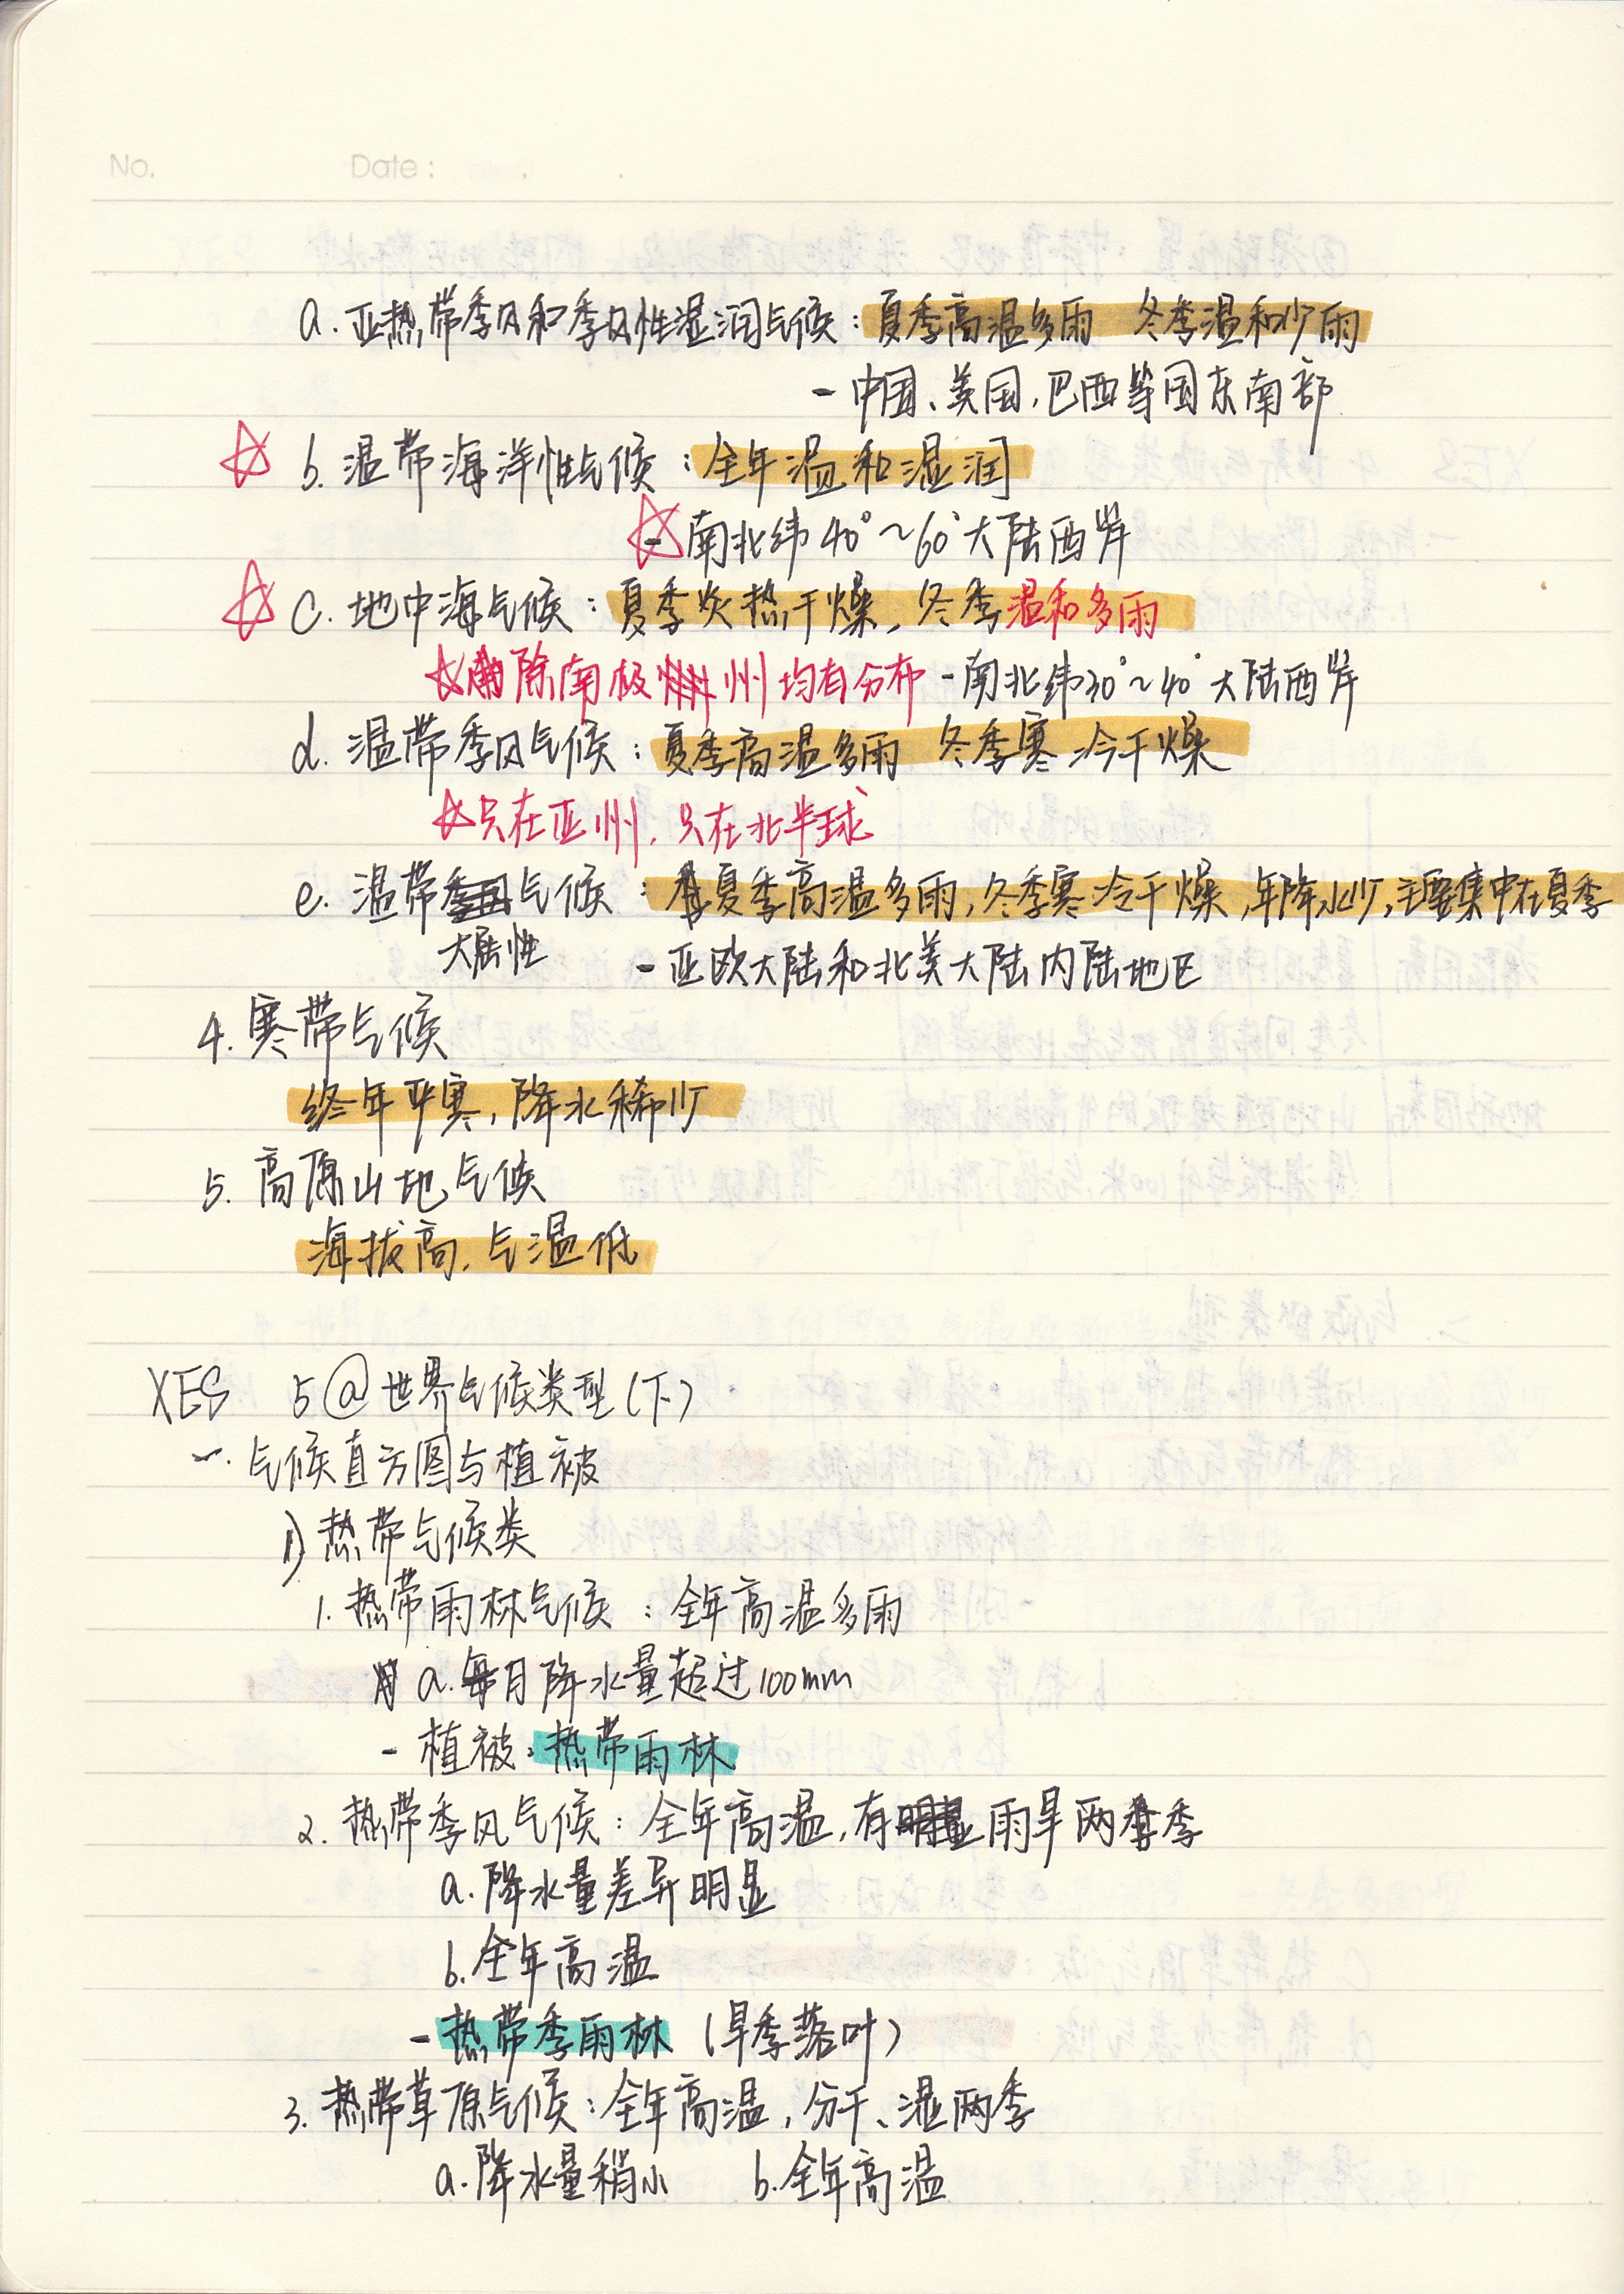 No. Date:
a. 亚热带季风和季风性湿润气候：夏季高温多雨 冬季温和少雨
- 中国、美国、巴西等国东南部
☆ b. 温带海洋性气候：全年温和湿润
☆ - 南北纬40°~60°大陆西岸
☆ c. 地中海气候：夏季炎热干燥，冬季温和多雨
☆ 除南极洲 均有分布 - 南北纬30°~40°大陆西岸
d. 温带季风气候：夏季高温多雨 冬季寒冷干燥
☆ 只在亚洲，只在北半球
e. 温带气候：夏季高温多雨，冬季寒冷干燥，年降水少，主要集中在夏季
大陆性 - 亚欧大陆和北美大陆内陆地区
4. 寒带气候
终年严寒，降水稀少
5. 高原山地气候
海拔高，气温低
XES 5@世界气候类型(下)
一. 气候直方图与植被
1) 热带气候类
1. 热带雨林气候：全年高温多雨
a. 每月降水量超过100mm
- 植被：热带雨林
2. 热带季风气候：全年高温，有明显雨旱两季
a. 降水量差异明显
b. 全年高温
- 热带季雨林（旱季落叶）
3. 热带草原气候：全年高温，分干、湿两季
a. 降水量稍小 b. 全年高温